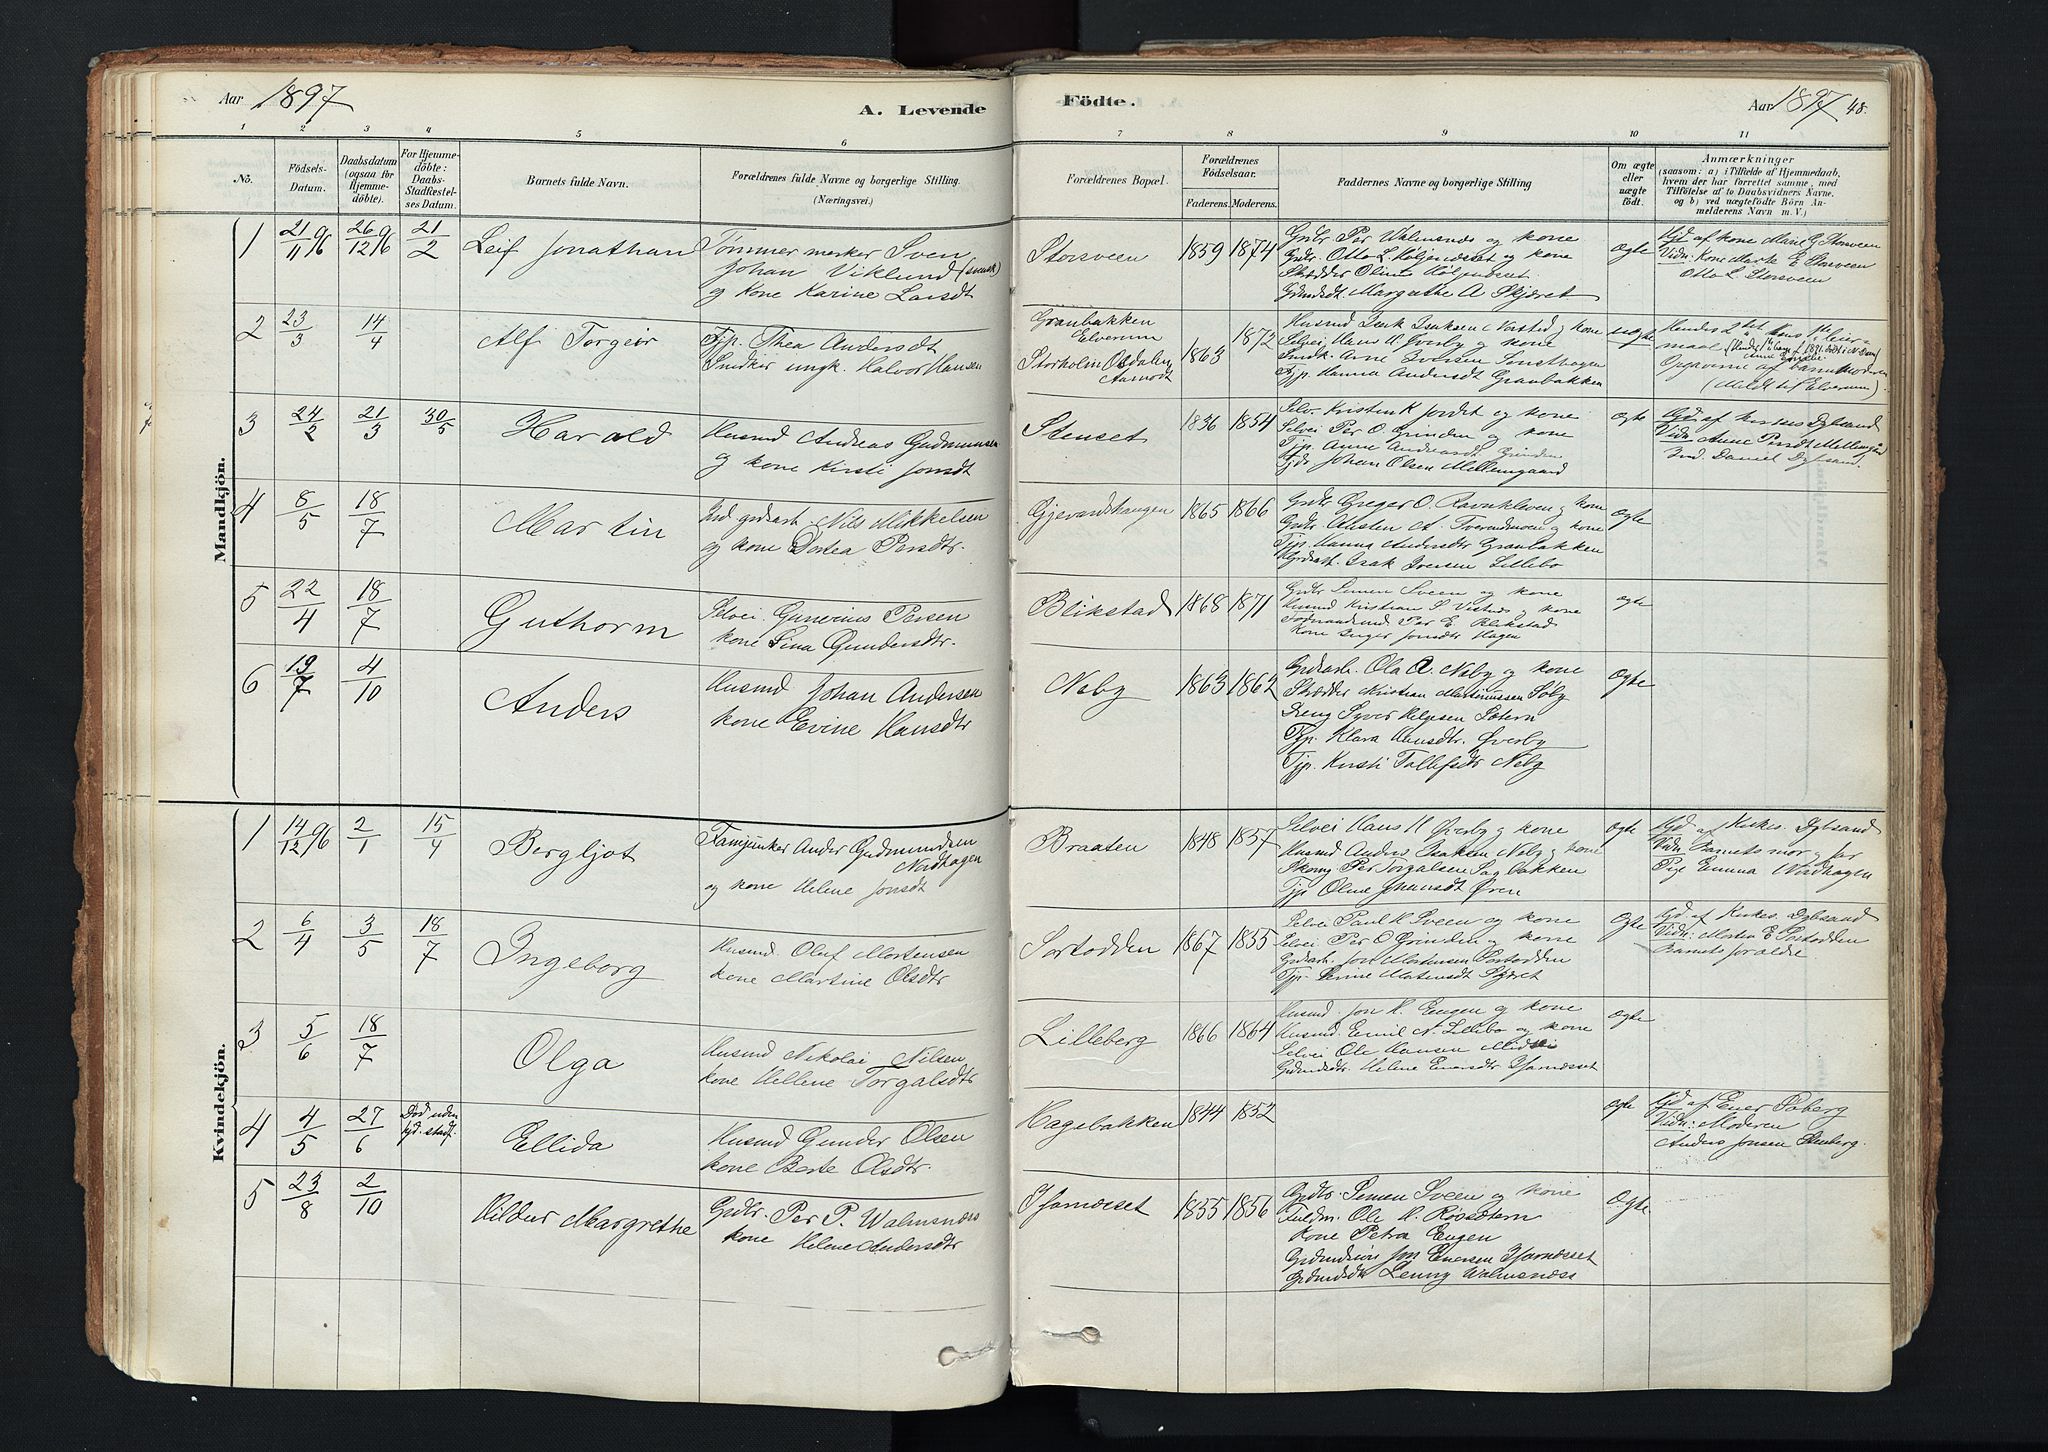 Aar 1897
A. Levende
Födte.
Aar 1897
48.
1 2 3 4 5 6 7 8 9 10 11
No.
Födsels-
Datum.
Daabsdatum
(ogsaa for
Hjemme-
döbte).
For Hjemme-
döbte:
Daabs-
Stadfæstel-
ses Datum.
Barnets fulde Navn.
Forældrenes fulde Navne og borgerlige Stilling.
(Næringsvei.)
Forældrenes Bopæl.
Forældrenes
Födselsaar.
Faderens. Moderens.
Faddernes Navne og borgerlige Stilling
Om ægte
eller
uægte
födt.
Anmærkninger
(saasom: a) i Tilfælde af Hjemmedaab,
hvem der har forrettet samme, med
Tilföielse af to Daabsvidners Navne,
og b) ved uægtefödte Börn An-
melderens Navn m. V.)
Mandkjön.
1 21/11 96 26/12 96 21/2 Leif Jonathan
Tømmermerker Sven
Johan Viklund (svensk)
og kone Karine Larsdt
Storsveen 1859 1874
Gmbr Per Valmsnes og kone
Gdbr. Otto L. og kone
Skrædder Olinus
Grdmdt. Margrethe A Skjæret
ægte
Hjd af kone Marie G Storsveen
Vidn: Kone Marte E Storsveen
Otto L. Storsveen
2 23/3 14/4 Alf Torgeir
Tjp. Thea Andersdt
Snidker ungk. Halvor Hansen
Granbakken
Elverum
Storholm Osdalen
Aamodt
1863 1872
Husmd Isak Isaksen og kone
Selvei Hans H Øverby og kone
Smdk. Arne Iversen
Tjp. Hanna Andersdt Granbakken
uægte
Hendes 2det Hans 1ste leier-
maal
Opgivende af barnemoderen
(Meldt til Elverum).
3 24/2 21/3 30/5 Harald
Husmd Andreas Gudmunsen
og kone Kirsti Jonsdt
Stenset 1836 1854
Selv. Kristen K Jordet og kone
Selvei Per O Grinden og kone
Tjp. Anne Andreasdt Grinden
Johan Olsen Mellemgaard
ægte
Hjd af kirkes Dybsand
Vidn: Anne Persdt Mellemgård
Ind. Daniel Dybsand.
4 8/5 18/7 Martin
Ind grdsarb Nils Mikkelsen
og kone Dortea Persdtr.
Gjevardshaugen 1865 1866
Gmbr Greger O. Ravnkleven og kone
Gmbr Austen A. Tverandmoen og kone
Tjp. Hanna Andersdtr Granbakken
Isak Iversen Lillebo
ægte
5 22/4 18/7 Guthorm
Selvei. Gunerius Persen
kone Sina Gundersdtr.
Blikstad 1868 1871
Gmbr Simen Sveen og kone
Husmd Kristian S Vestnes og kone
Per E. Blikstad
Kone Inger Jonsdtr Hagen
ægte
6 19/7 4/10 Anders
Husmd Johan Andersen
kone Evine Hansdtr
Neby 1863 1862
Grdsarb. Ola A. Neby og kone
Skrædder Kristian Martinussen Søby
Dreng Syver Helgesen Søtern
Tjp. Klara Hansdtr. Øverby
Tjp. Kirsti Tollefsdtr Neby
ægte
Kvindekjön.
1 14/12 96 2/1 15/4 Bergljot
Fanejunker Ander Gudmundsen
Nordhagen
og kone Helene Jonsdt
Braaten 1848 1857
Selvei Hans H Øverby og kone
Husmd Anders Isaksen Neby og kone
Per Torgalsen Sagbakken
Tjp. Oline Øren
ægte
Hjd. af Kirkes. Dybsand
Vidn: Barnets mor og far
Pige Emma Nordhagen
2 6/4 3/5 18/7 Ingeborg
Husmd. Oluf Mortensen
kone Martine Olsdtr
Sortodden 1867 1855
Selvei Paul K. Sveen og kone
Selvei Per O Grinden og kone
Grdsarb. Jon Mortensen Sortodden
Tjp. Semine Mortensdt Skjæret
ægte
Hjd. af Kirkes. Dybsand
Vidn: Morten E Sortodden
Barnets foreldre.
3 5/6 18/7 Olga
Husmd Nikolai Nilsen
kone Hellene Torgalsdtr
Lilleberg 1866 1864
Husmd. Jon H. Engen og kone
Husmd. Emil N. Lillebo og kone
Selvei Ole Hansen
Grdmdsdtr. Helene Enersdtr
ægte
4 4/5 27/6 Død uden
hjd. stadf. Ellida
Husmd Gunder Olsen
kone Berte Olsdtr.
Hagebakken 1844 1852
ægte
Hjd af Ener Søberg
Vidn: Moderen
Anders Jonsen Stenberg.
5 23/8 2/10 Hildur Margrethe
Grdbr. Per P. Valmsnes
kone Helene Andersdtr
1855 1856
Grdbr. Simen Sveen og kone
Ole H. Røssætern
Kone Petra Engen
Jon Enersen
Grdmdsdtr Lenny Valmsness
ægte